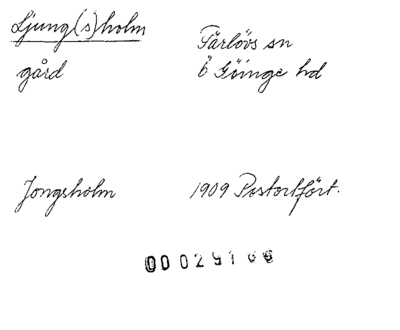 Ljung(s)holm
Färlövs sn
gård
Ö Göinge hd
Jongsholm
1909 Postortfört.
00029166